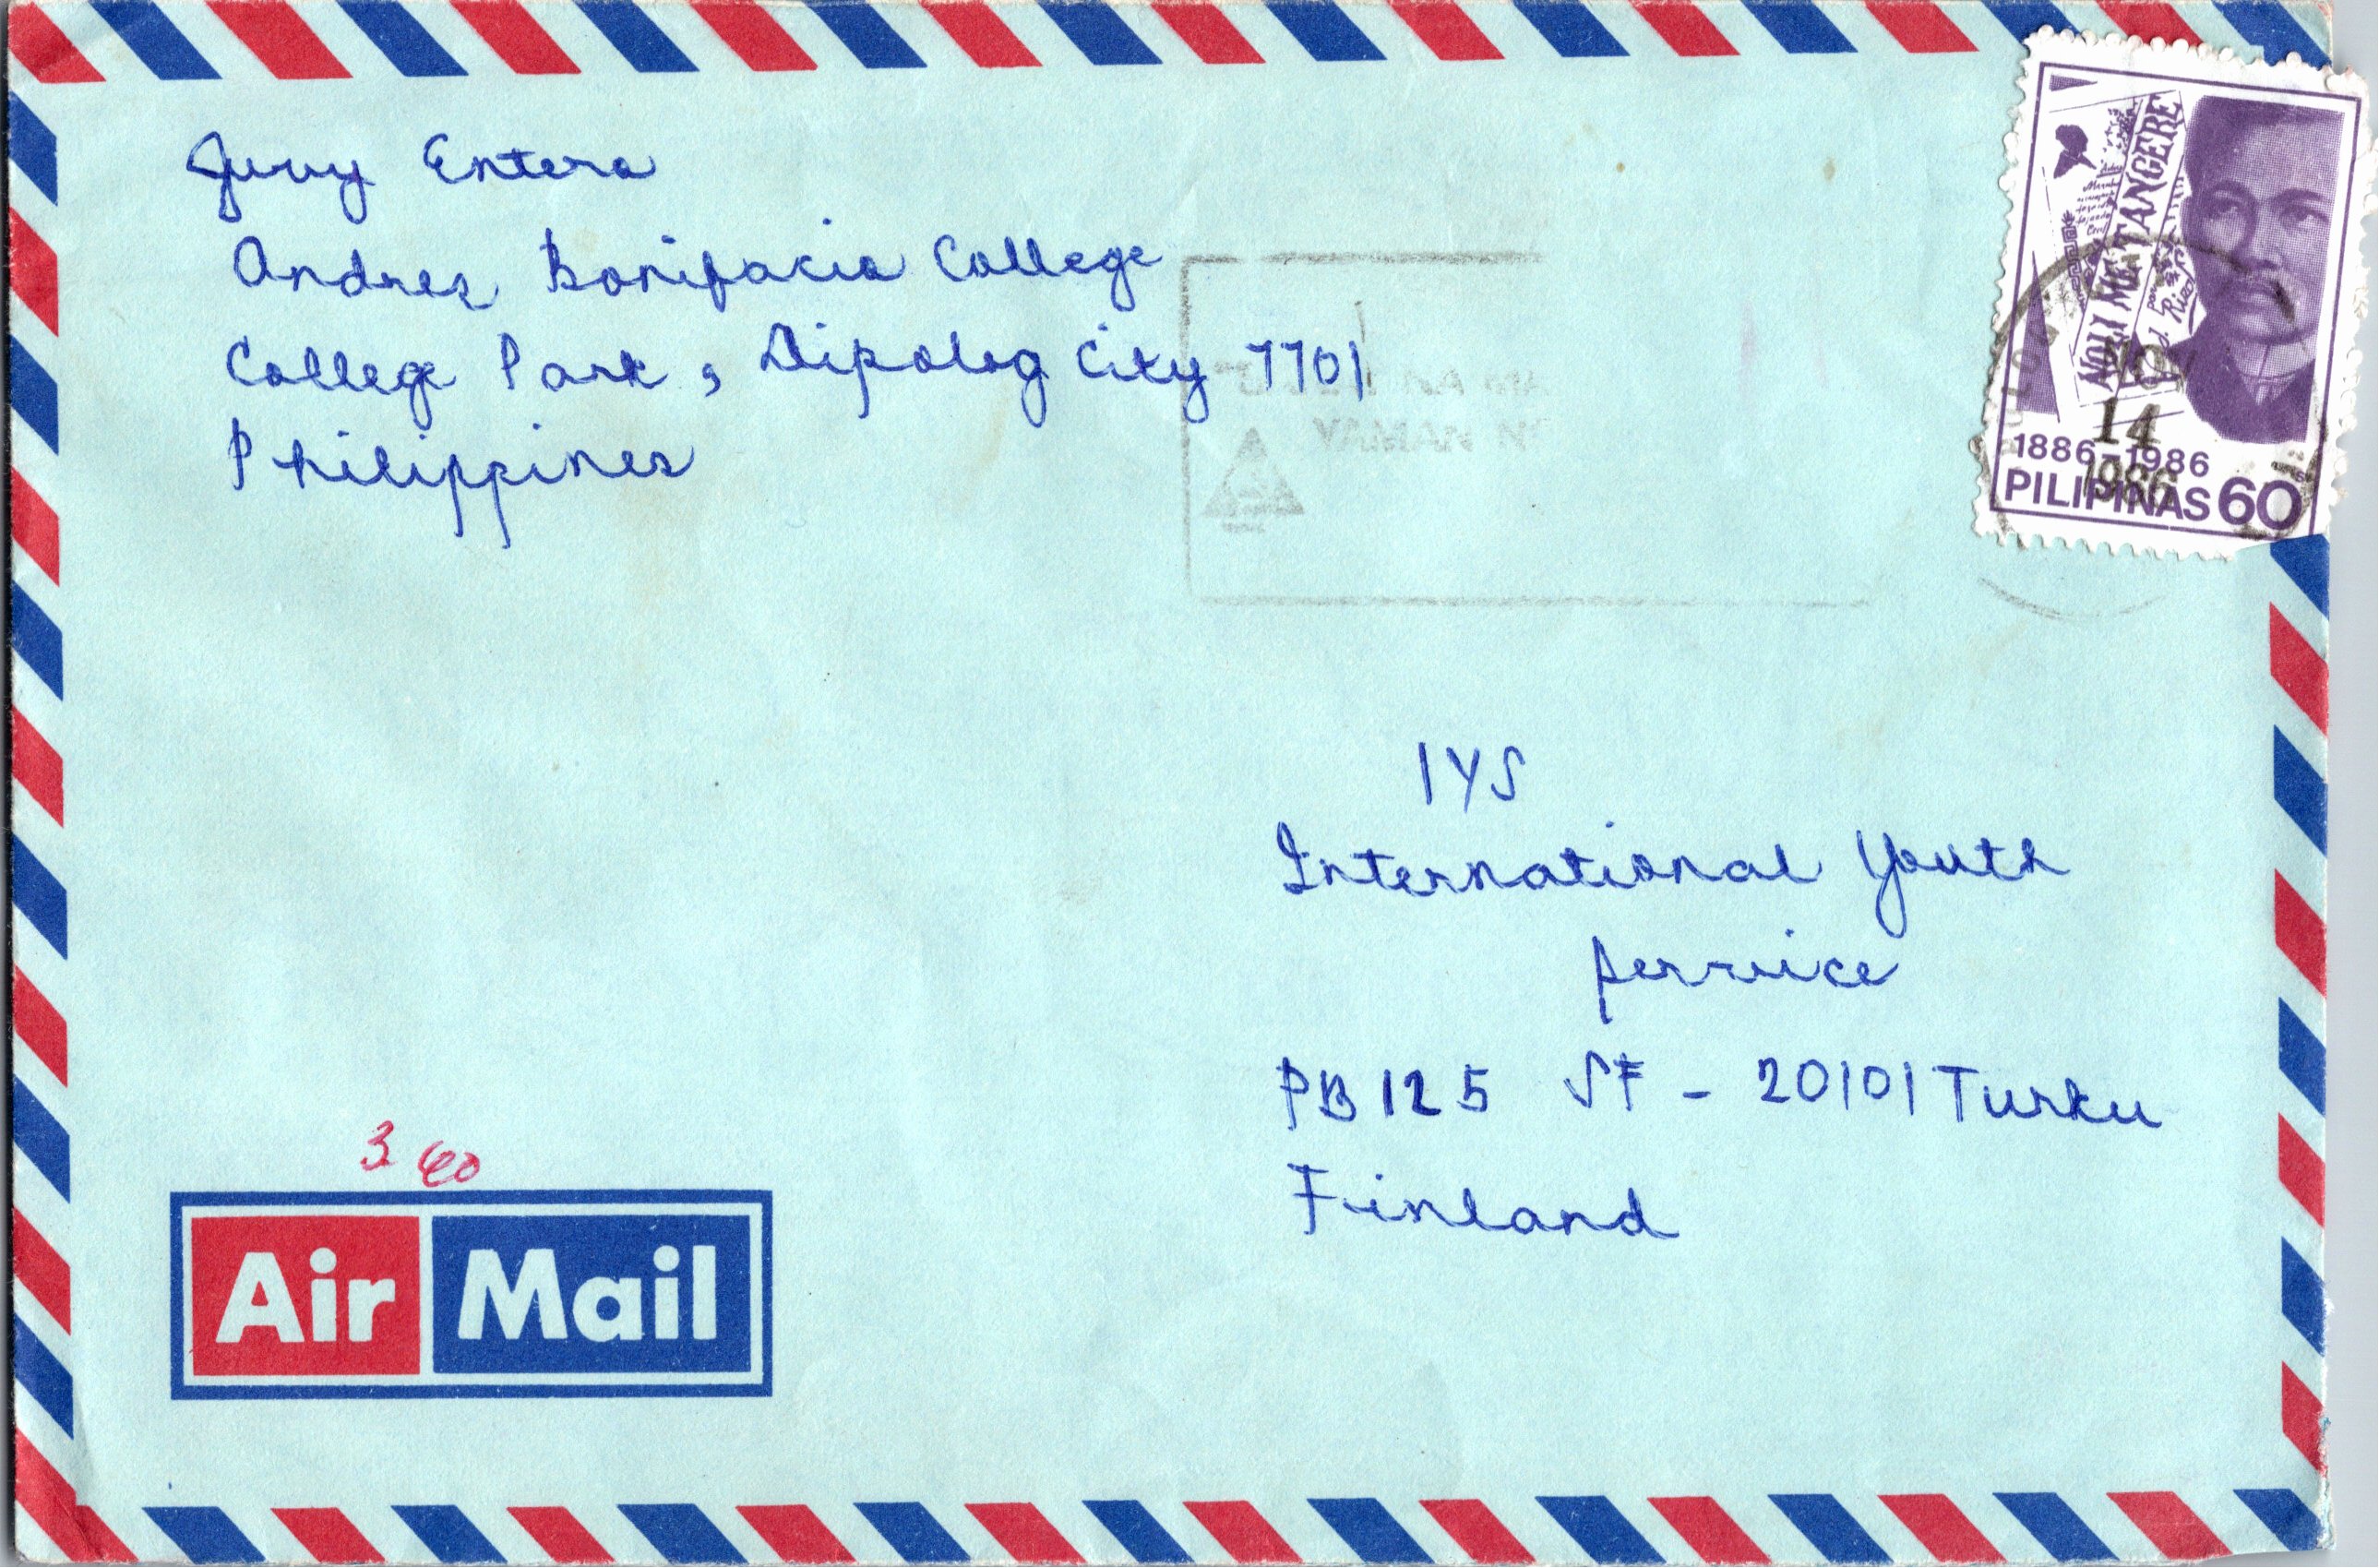 Juvy Entera
Andres Bonifacio College
College Park, Dipolog City 7701
Philippines
NOLI ME TANGERE
Rizal
14
1986
1886-1986
PILIPINAS 60
NA MA
YAMAN N
IYS
International Youth
Service
PB 125 SF - 20101 Turku
Finland
3 60
Air Mail